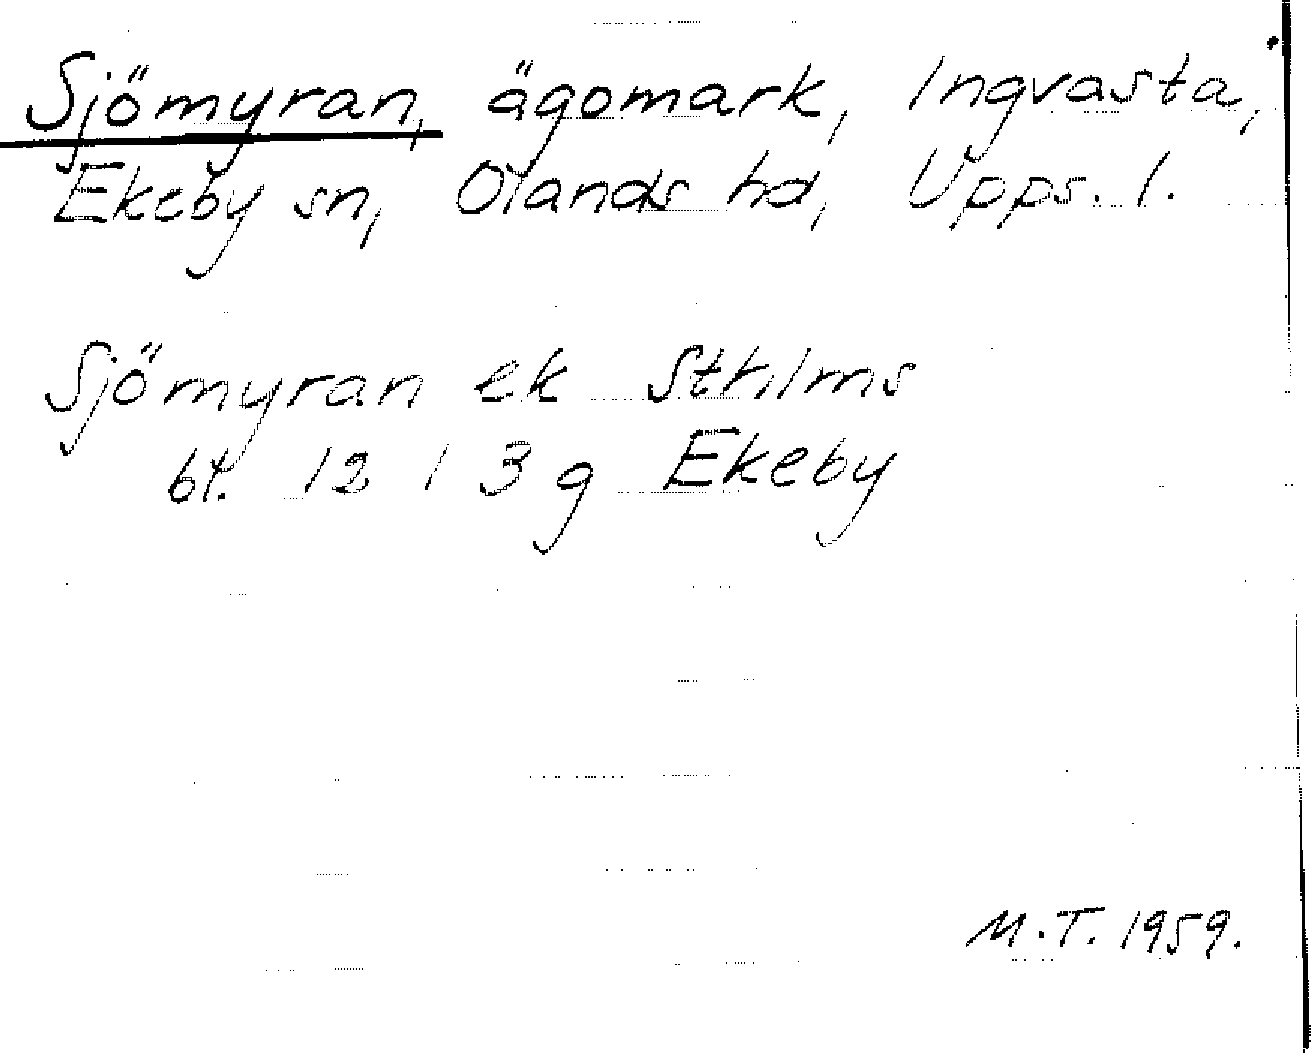 Sjömyran, ägomark, Ingvasta,
Ekeby sn, Olands hd, Upps. l.
Sjömyran ek Sthlms
bl. 12 I 3 g Ekeby
M.T. 1959.